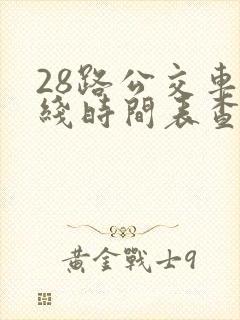 28路公交車
綫時間表查
黃金戰士9